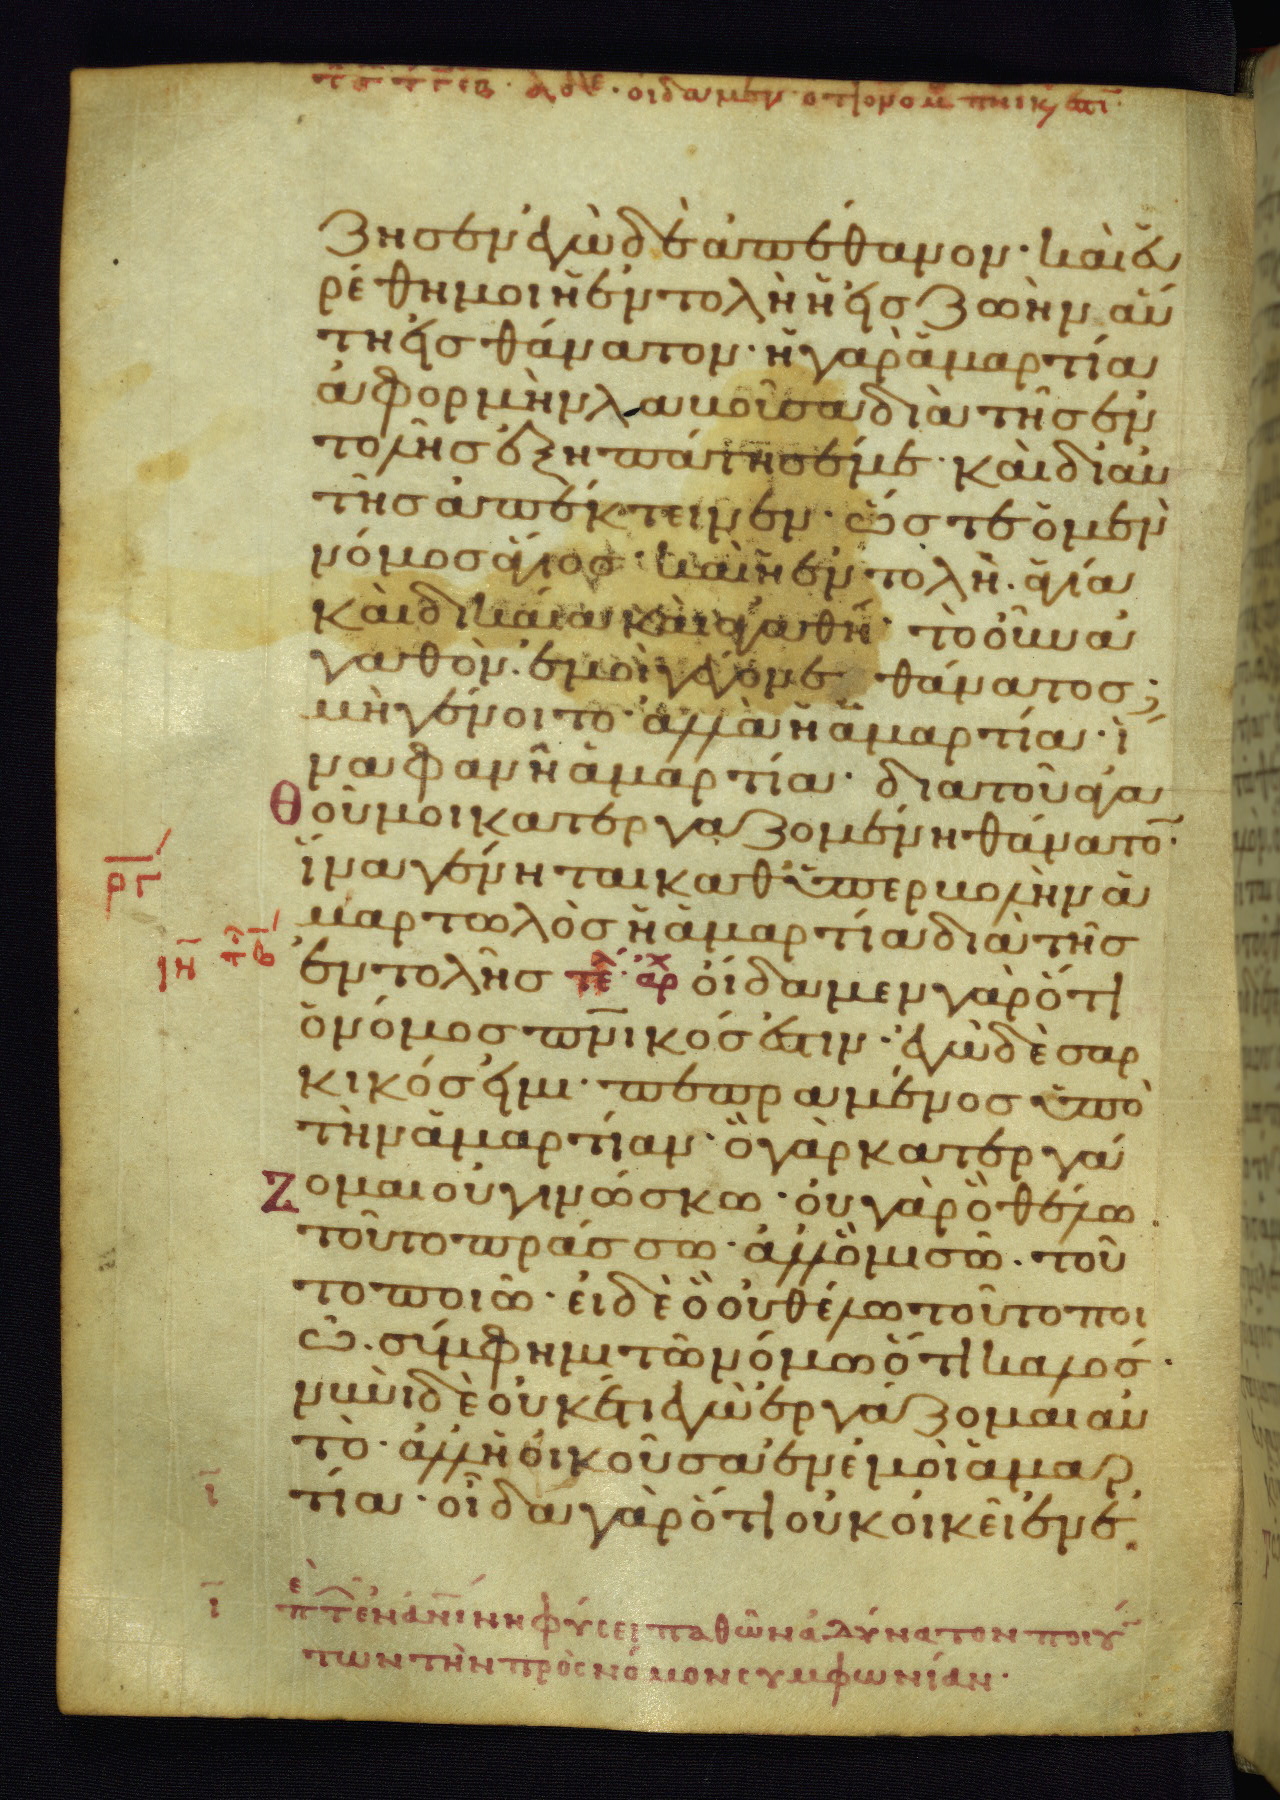 ζησεν ἐγὼ δὲ ἀπέθανον· καὶ εὑ
ρέθη μοι ἡ ἐντολὴ ἡ εἰς ζωὴν αὕ
τη εἰς θάνατον· ἡ γαρ ἁμαρτία
ἀφορμὴν λαβοῦσα διὰ τῆς ἐν
τολῆς ἐξηπάτησέν με· καὶ δι αὐ
τῆς ἀπέκτεινεν· ὥστε ὁ μὲν
νόμος ἅγιος· καὶ ἡ ἐντολὴ· ἁγία
καὶ δικαία καὶ ἀγαθή· τὸ οὖν ἀ
γαθὸν· ἐμοὶ γέγονε θάνατος;
μὴ γένοιτο· ἀλλὰ ἡ ἁμαρτία· ἵ
να φανῆ ἁμαρτία· δια τοῦ ἀγα
θοῦ μοι κατεργαζομένη θάνατο̅·
ἵνα γένηται καθ ὑπερβολὴν ἁ
μαρτωλὸς ἡ ἁμαρτία διὰ τῆς
ρ̅γ̅
ι̅η̅
ἐντολῆς τε^λ· αρ^χ οἴδαμεν γὰρ ὅτι
ὁ νόμος πν̅ικός ἐστιν· ἐγὼ δὲ σαρ
κικός εἰμι· πεπραμένος ὑπὸ
τὴν ἁμαρτίαν· ὃ γὰρ κατεργά
ζομαι οὐ γινώσκω· οὐ γὰρ ὃ θέλω
τοῦτο πράσσω· ἀλλ ὃ μισῶ· τοῦ
το ποιῶ· εἰ δὲ ὃ οὐ θέλω τοῦτο ποι
ῶ· σύμφημι τῶ νόμω ὅτι καλός·
νυνὶ δὲ οὐκ έτι ἐγὼ ἐργάζομαι αὐ
τὸ· ἀλλ ἡ οἰκοῦσα ἐν ἐμοὶ ἁμαρ
τία· οἶδα γὰρ ὅτι οὐκ οἰκεῖ ἐν ἐ
ι̅
ι̅
φύσει παθῶν ἀδύνατον ποιου̅
των τὴν πρὸς νόμον συμφωνίαν·